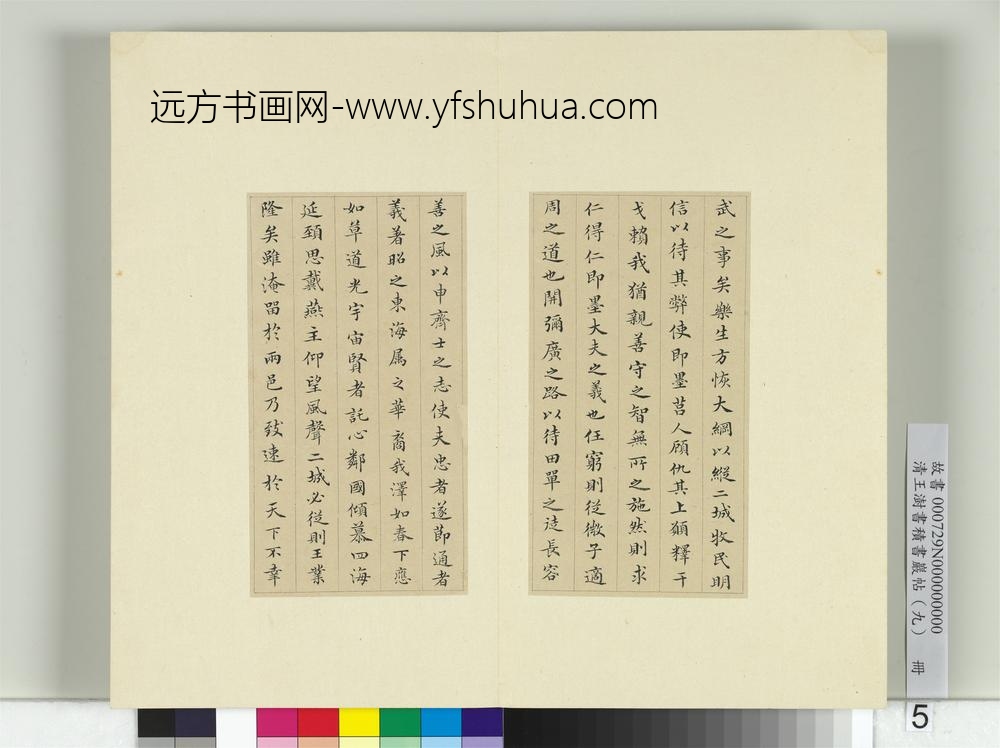 远方书画网-www.yfshuhua.com
武之事矣樂生方恢大綱以縱二城牧民明
信以待其弊使即墨莒人顧仇其上願釋干
戈賴我猶親善守之智無所之施然則求
仁得仁即墨大夫之義也任窮則從微子適
周之道也開彌廣之路以待田單之徒長容
善之風以申齊士之志使夫忠者遂節通者
義著昭之東海属之華裔我澤如春下應
如草道光宇宙賢者託心鄰國傾慕四海
延頸思戴燕主仰望風聲二城必從則王業
隆矣雖淹留於兩邑乃致速於天下不幸
故書 000729N000000000
清王澍書積書巖帖(九) 冊
5